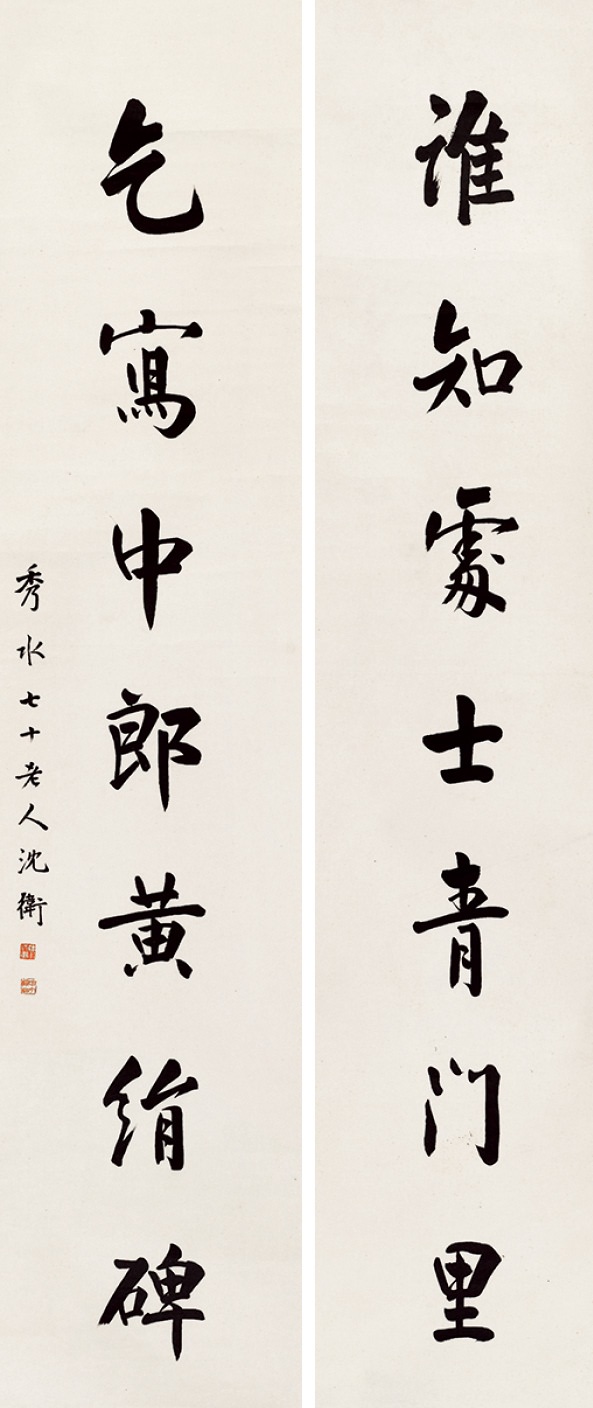 谁知處士青门里
乞寫中郎黄絹碑
秀水七十老人沈衛